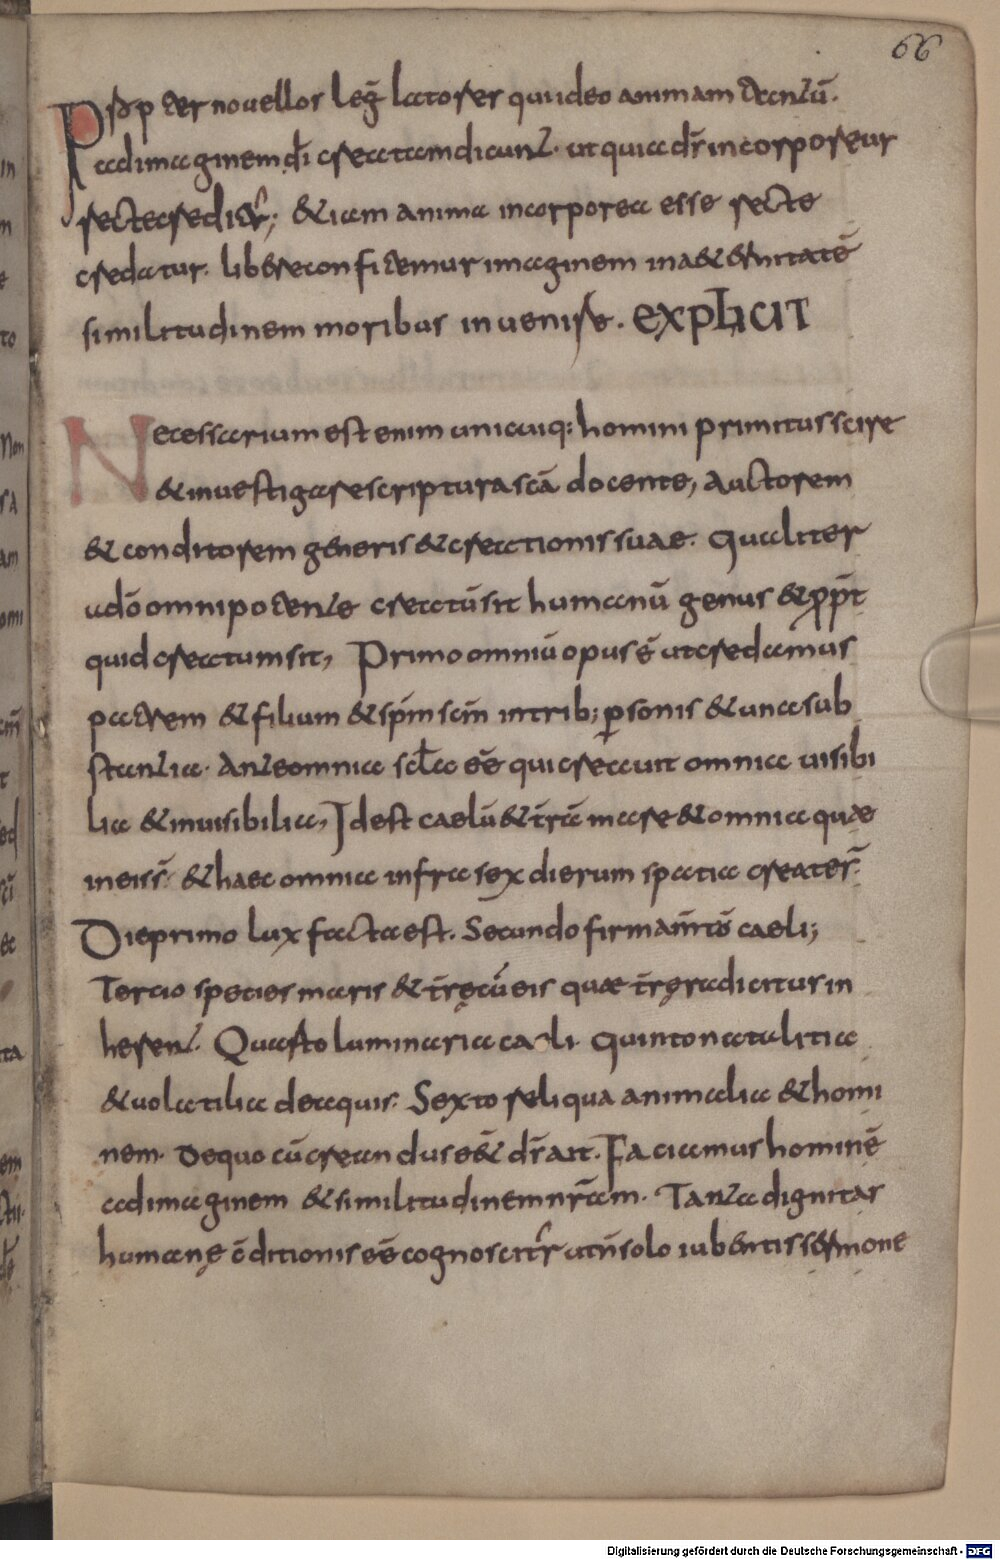 66
Psō pter nouellos legī lectores qui ideo animam tantū
ad imaginem dī creatam dicunt. ut quia ds incorporeus
recte creditr; & iam anima incorporea esse recte
credatur. libere confitemur imaginem in aeternitatē
similitudinem moribus inuenire. EXPLICIT
Necessarium est enim unicuiq: homini primitus scire
& inuestigare scriptura scā docente, auctorem
& conditorem generis & creationis suae. qualiter
a dō omnipotente creatū sit humanū genus & propt
quid creatum sit, Primo omniū opus ē ut credamus
patrem & filium & spm scm in trib; personis & una sub
stantia. ante omnia scla eē qui creauit omnia uisibi
lia & inuisibilia, Id est caelū & trā mare & omnia quae
in eis s̄. & haec omnia infra sex dierum spatia creates̄.
Die primo lux facta est. Secundo firmamtō caeli;
Tercio species maris & trę cū eis quae trę radicitus in
herent. Quarto luminaria caeli. Quinto natalitia
& uolatilia de aquis. Sexto reliqua animalia & homi
nem. De quo cū creandus eēt ds ait. Faciamus hominē
ad imaginem & similitudinem nrām. Tanta dignitas
humanę cōditionis eē cognoscitr ut n̄ solo iubentis sermone
Digitalisierung gefördert durch die Deutsche Forschungsgemeinschaft - DFG